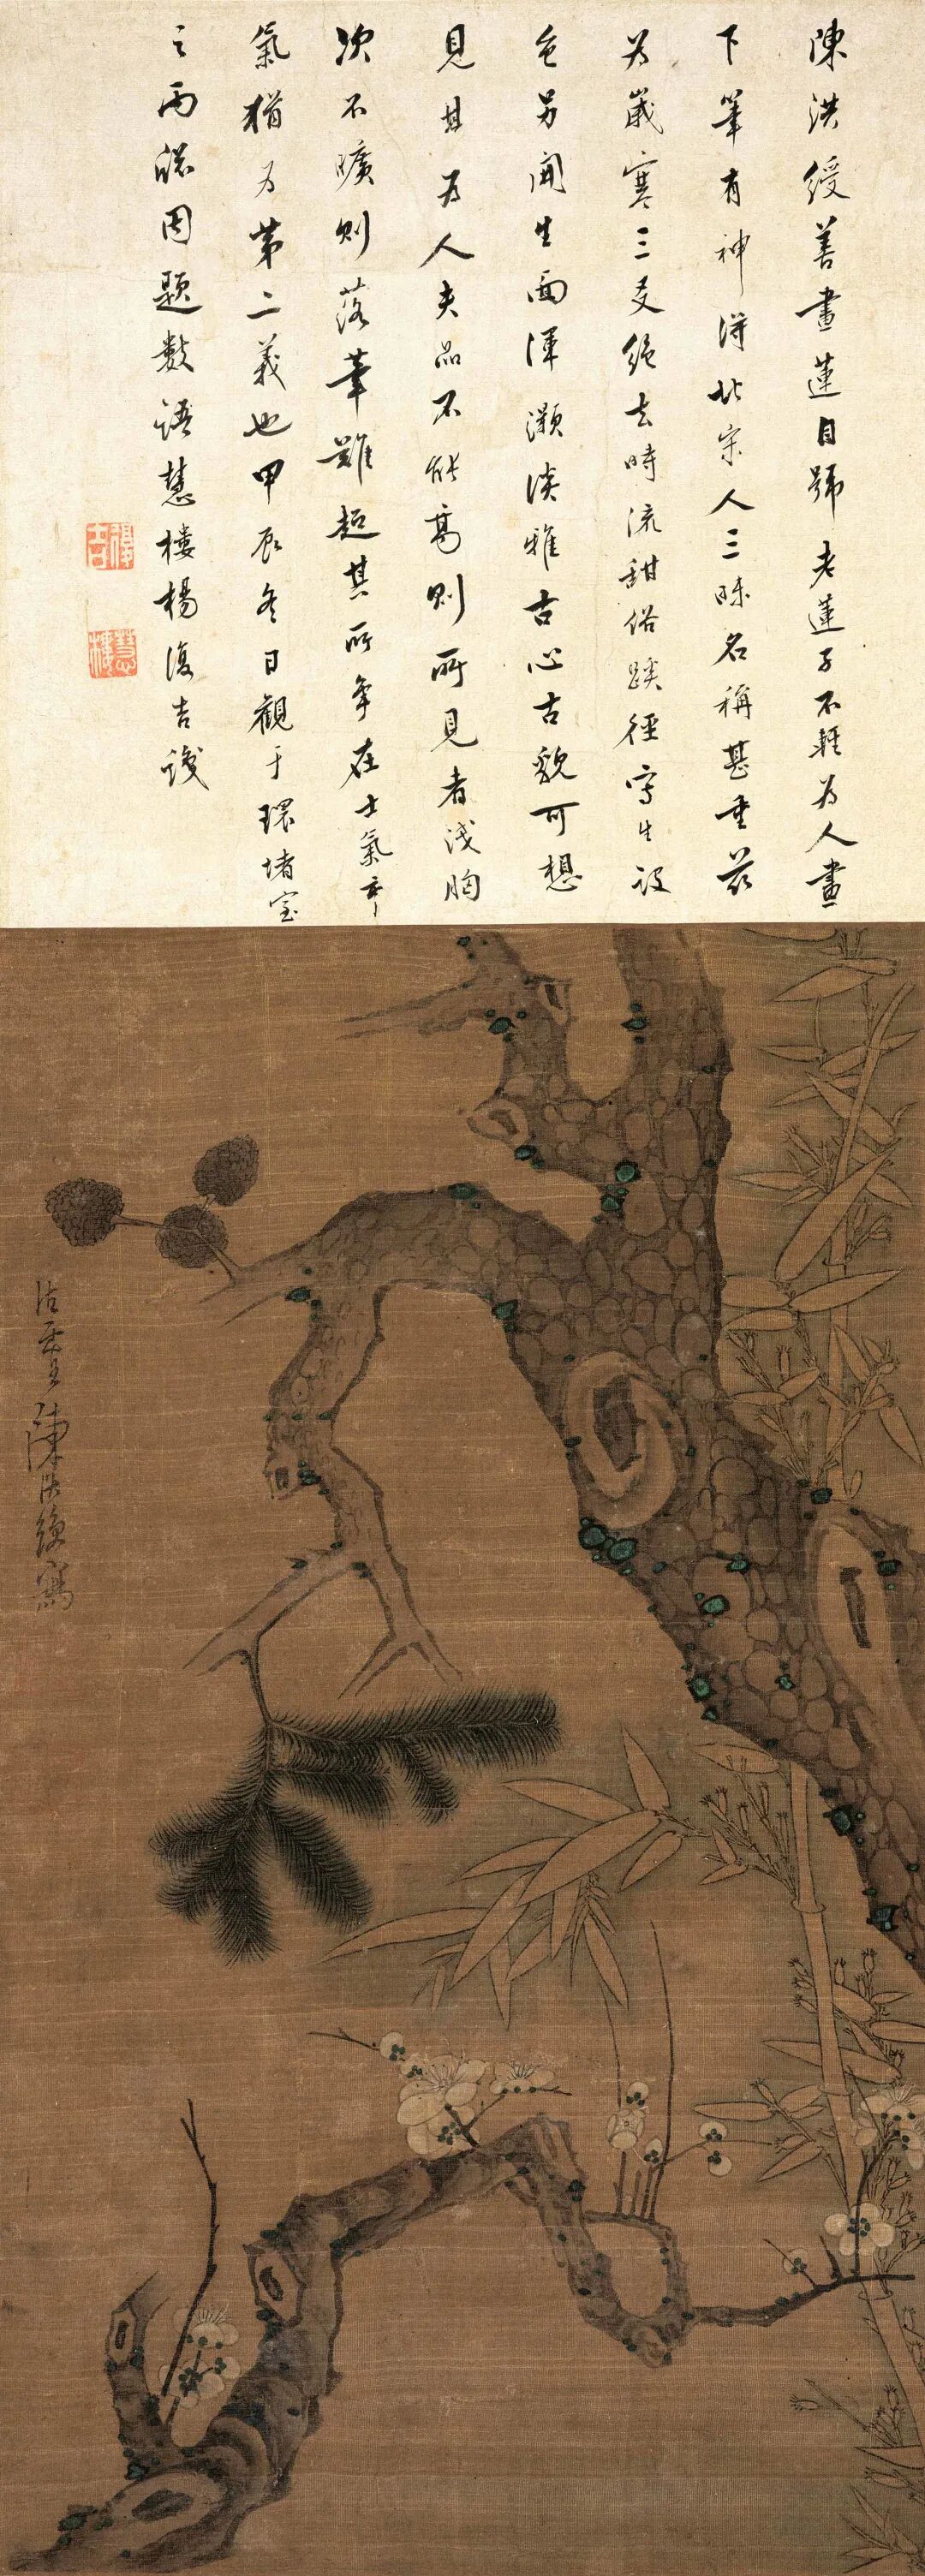 陳洪綬善畫蓮自號老蓮子不輕為人畫
下筆有神得北宋人三昧名稱甚重茲
為歲寒三友絕去時流甜俗蹊徑寫生設
色另開生面渾灝淡雅古心古貌可想
見其為人夫品不能高則所見者淺胸
次不曠則落筆難超其所爭在士氣耳
氣猶為第二義也甲辰冬日觀于環堵室
之兩 因題數語慧樓楊復吉識
復吉
慧樓
陳洪綬寫